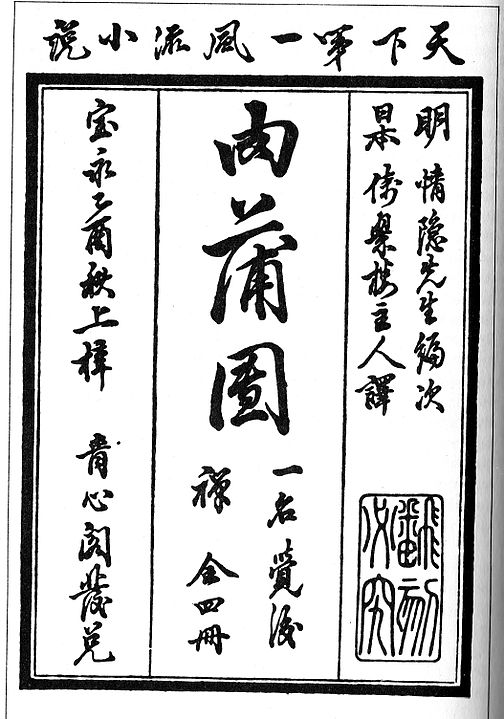 天下第一風流小說
明 情隱先生編次
日本 倚翠樓主人譯
翻刻必究
肉蒲團
一名覺後
禪 全四冊
宝永乙酉秋上梓 青心閣發兌